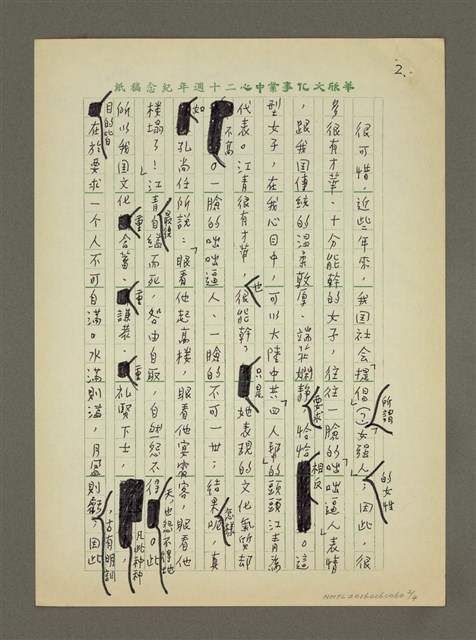 2.
華欣文化事業中心二十週年紀念稿紙
很可惜，近些年來，我国社会提倡所謂「女強人」的女性；因此，很
多很有才華、十分能幹的女子，往往一臉的「咄咄逼人」表情
，跟我国傳統的溫柔敦厚、端莊嫻靜要求恰恰相反。這
型女子，在我心目中，可以大陸中共「四人幫」的頭頭江青為
代表。江青很有才華，也很能幹，只是她表現的文化氣質却
不高。一臉的咄咄逼人、一臉的不可一世；結果呢，怎樣？真
如孔尚任所說：「眼看他起高樓，眼看他宴賓客，眼看他
樓塌了！」江青最後自縊而死，咎由自取，自然怨不得天，也怨不得地。此
所以我国文化重含蓄、重謙恭、重礼賢下士，凡此種種
目的皆在於要求一個人不可自滿。水滿則溢，月盈則虧，古有明訓，因此
NMTL20160060060 2/4